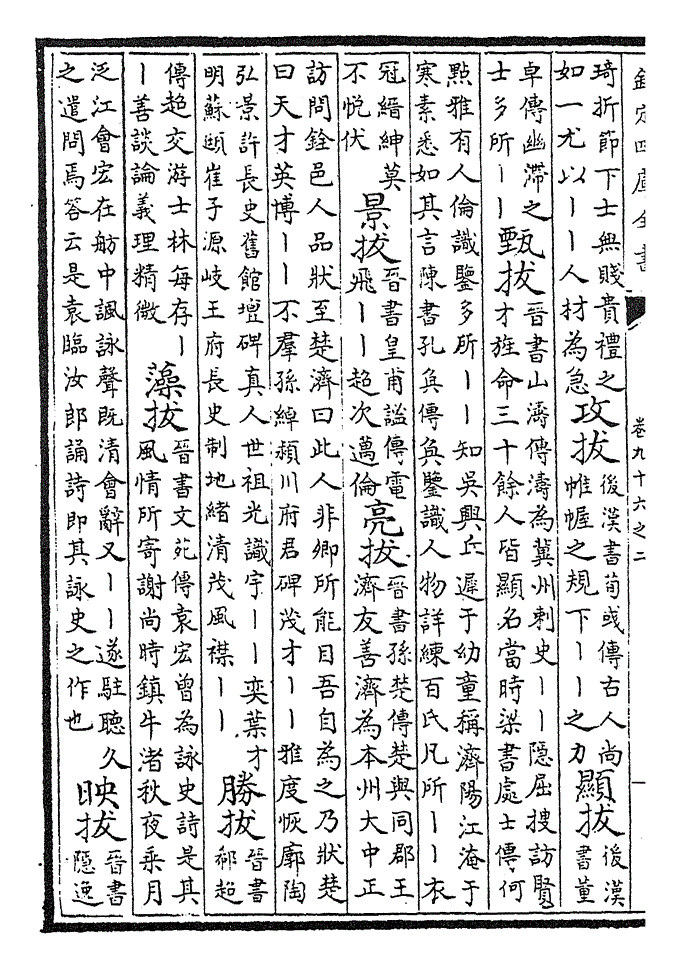 欽定四庫全書
卷九十六之二
琦折節下士無賤貴禮之
如一尤以丨丨人材為急
攻拔
後漢書荀彧傳古人尚
帷幄之規下丨丨之力
顯拔
後漢
書董
卓傳幽滯之
士多所丨丨
甄拔
晉書山濤傳濤為冀州刺史丨丨隱屈搜訪賢
才旌命三十餘人皆顯名當時梁書處士傳何
點雅有人倫識鑒多所丨丨知吳興丘遲于幼童稱濟陽江淹于
寒素悉如其言陳書孔奐傳奐鑒識人物詳練百氏凡所丨丨衣
冠縉紳莫
不悅伏
景拔
晉書皇甫謐傳電
飛丨丨超次邁倫
亮拔
晉書孫楚傳楚與同郡王
濟友善濟為本州大中正
訪問銓邑人品狀至楚濟曰此人非卿所能目吾自為之乃狀楚
曰天才英博丨丨不羣孫綽潁川府君碑茂才丨丨雅度恢廓陶
弘景許長史舊館壇碑真人世祖光識宇丨丨奕葉才
明蘇頲崔子源岐王府長史制地緒清茂風襟丨丨
勝拔
晉書
郗超
傳超交游士林每存丨
丨善談論義理精微
藻拔
晉書文苑傳袁宏曾為詠史詩是其
風情所寄謝尚時鎮牛渚秋夜乘月
泛江會宏在舫中諷詠聲既清會辭又丨丨遂駐聽久
之遣問焉答云是袁臨汝郎誦詩即其詠史之作也
映拔
晉書
隱逸